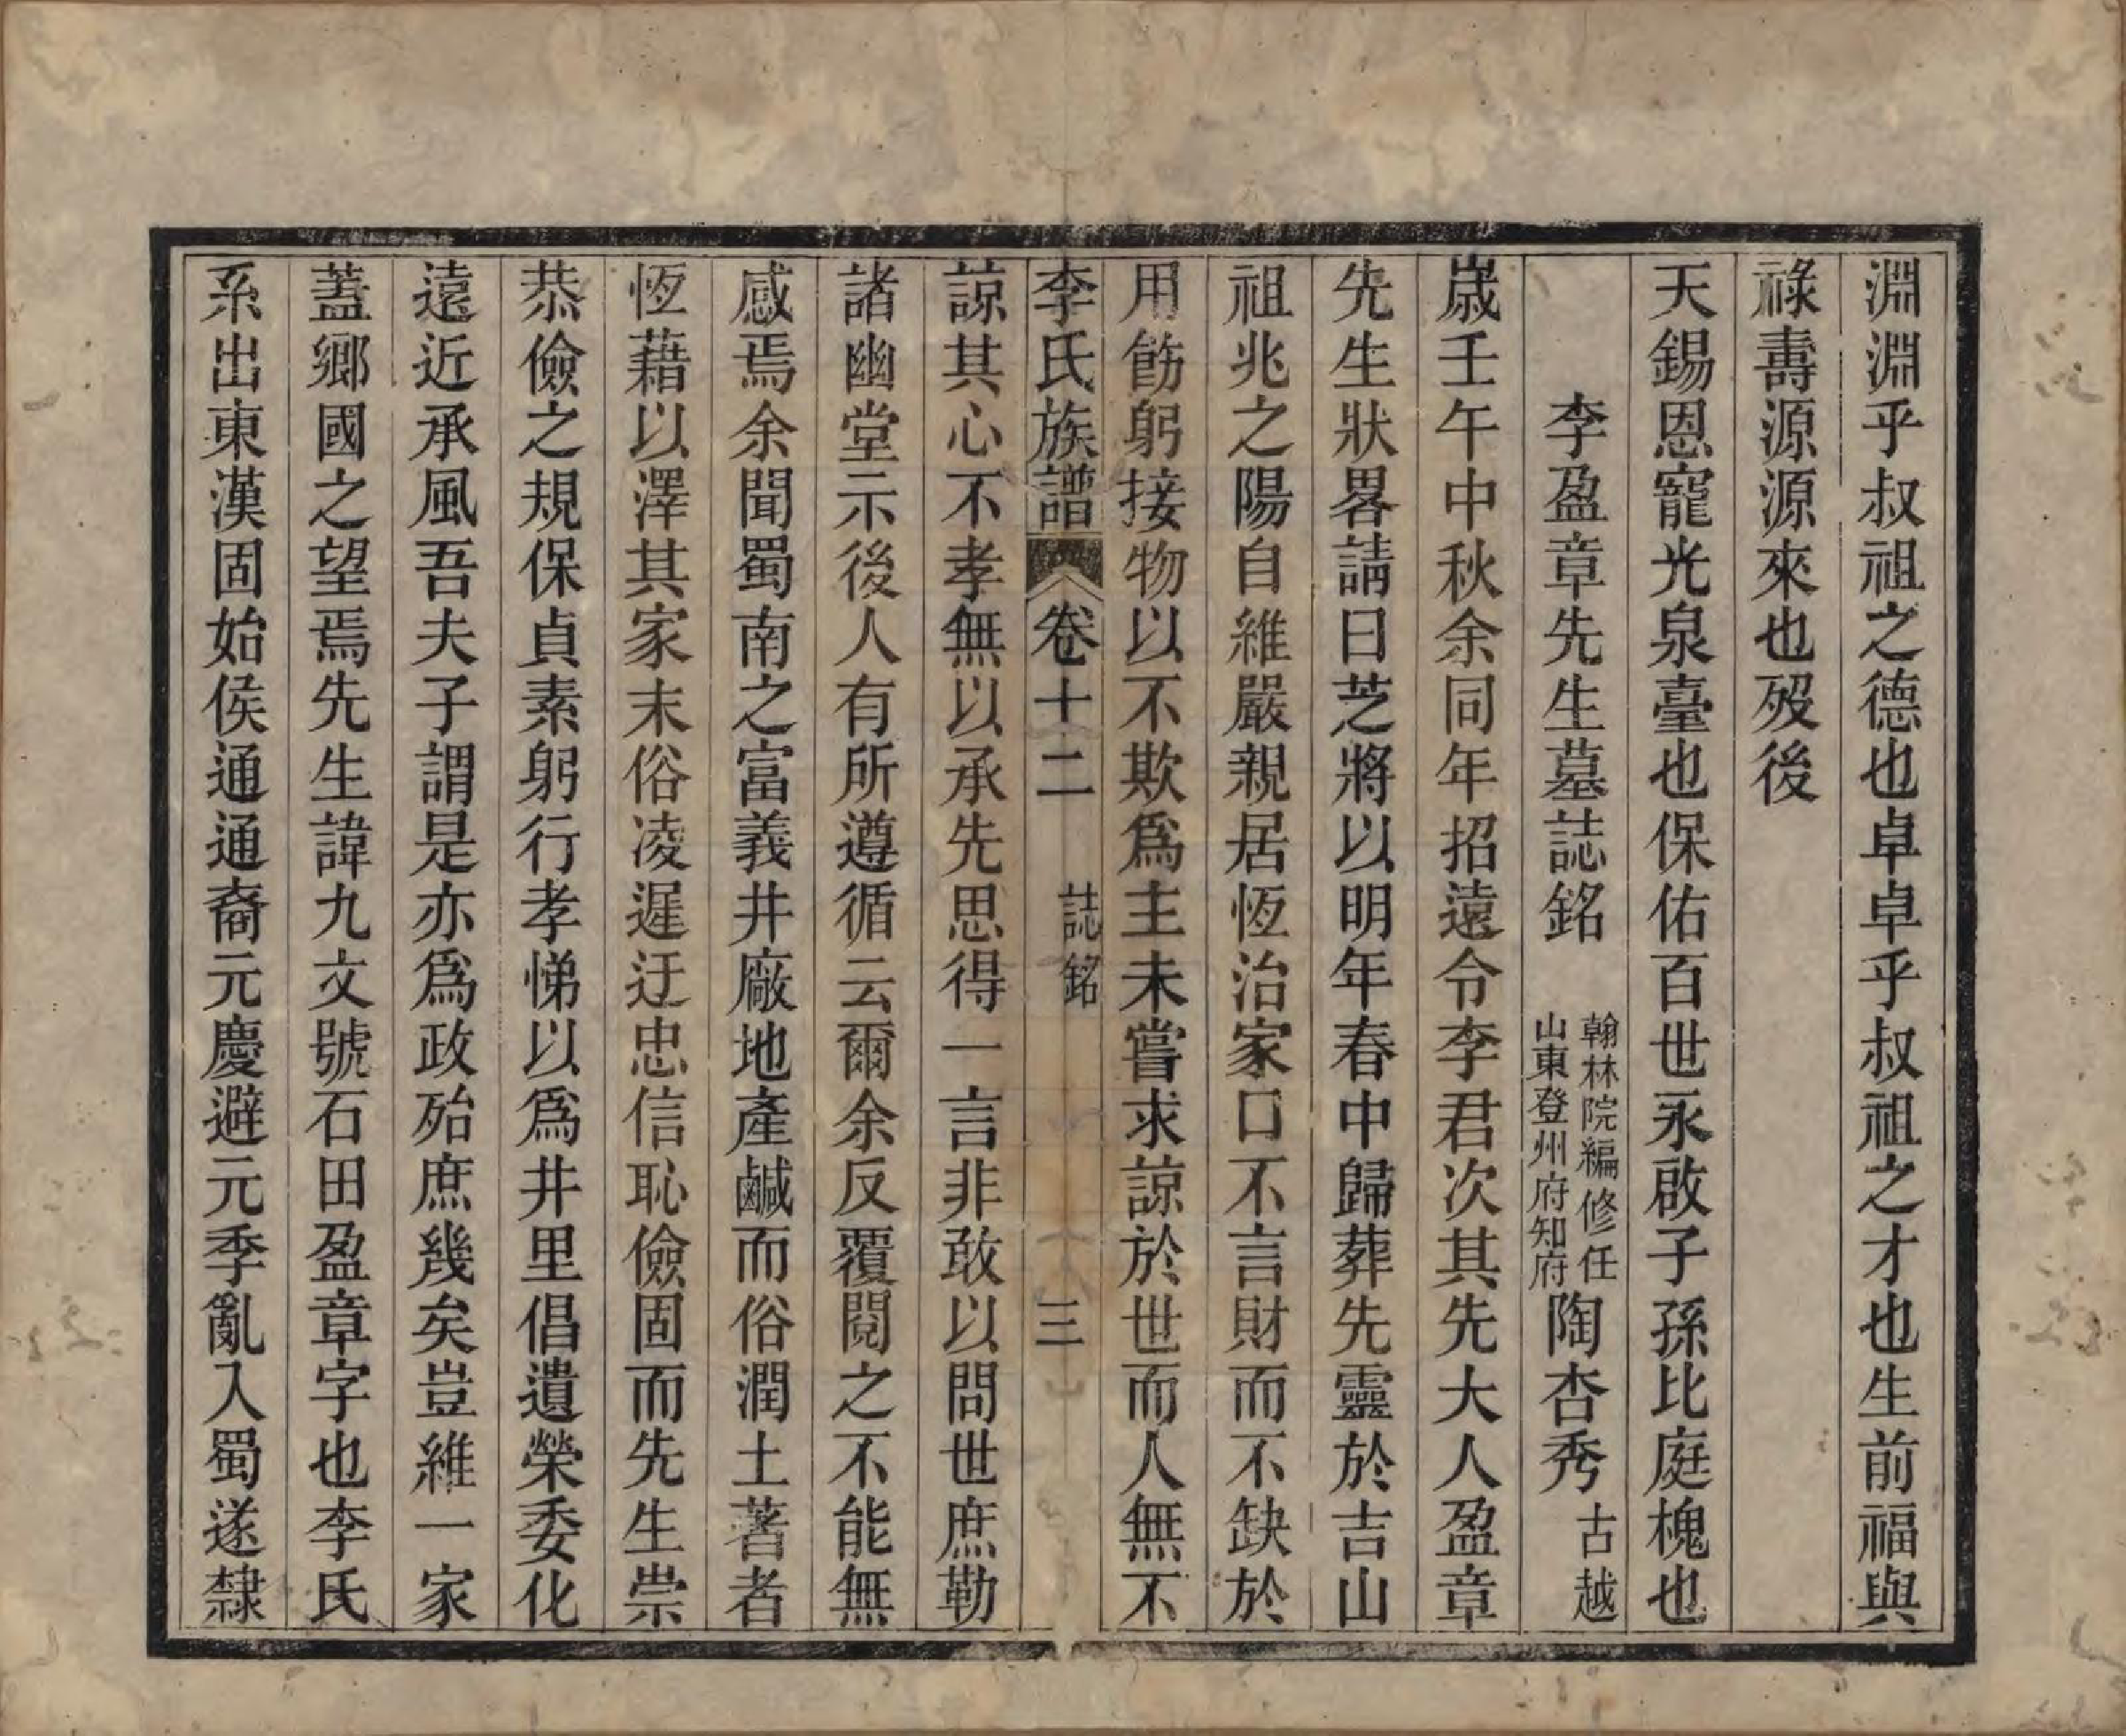 淵淵乎叔祖之德也卓卓乎叔祖之才也生前福與
祿壽源源來也歿後
天錫恩寵光泉臺也保佑百世永啟子孫比庭槐也
李盈章先生墓誌銘 翰林院編修任山東登州府知府 陶杏秀 古越
歲壬午中秋余同年招遠令李君次其先大人盈章
先生狀畧請曰芝將以明年春中歸葬先靈於吉山
祖兆之陽自維嚴親居恆治家口不言財而不缺於
用飭躬接物以不欺爲主未嘗求諒於世而人無不
李氏族譜 卷十二 誌銘 三
諒其心不孝無以承先思得一言非敢以問世庶勒
諸幽堂示後人有所遵循云爾余反覆閱之不能無
感焉余聞蜀南之富義井廠地產鹹而俗潤土著者
恆藉以澤其家末俗凌遲迂忠信恥儉固而先生崇
恭儉之規保貞素躬行孝悌以爲井里倡遺榮委化
遠近承風吾夫子謂是亦爲政殆庶幾矣豈維一家
蓋鄉國之望焉先生諱九文號石田盈章字也李氏
系出東漢固始侯通通裔元慶避元季亂入蜀遂隸